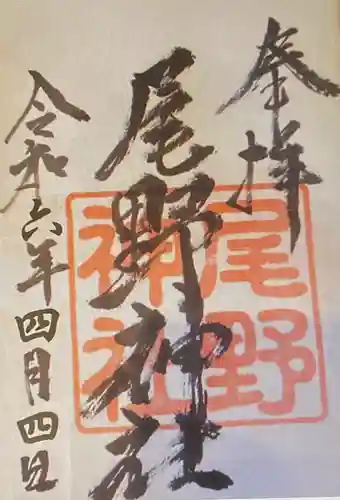 奉拝
尾野神社
尾野
神社
令和六年四月四日